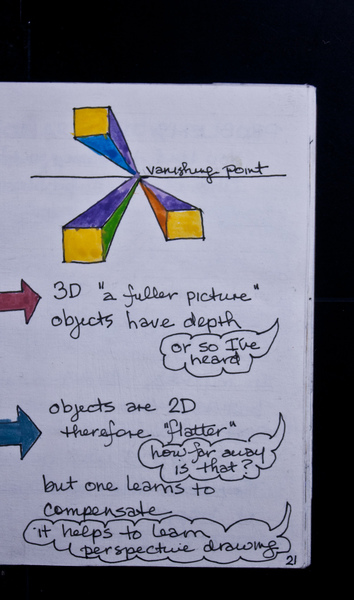 vanishing point
3D "a fuller picture"
objects have depth
or so I've
heard
objects are 2D
therefore "flatter"
how far away
is that?
but one learns to
compensate
it helps to learn
perspective drawing
21